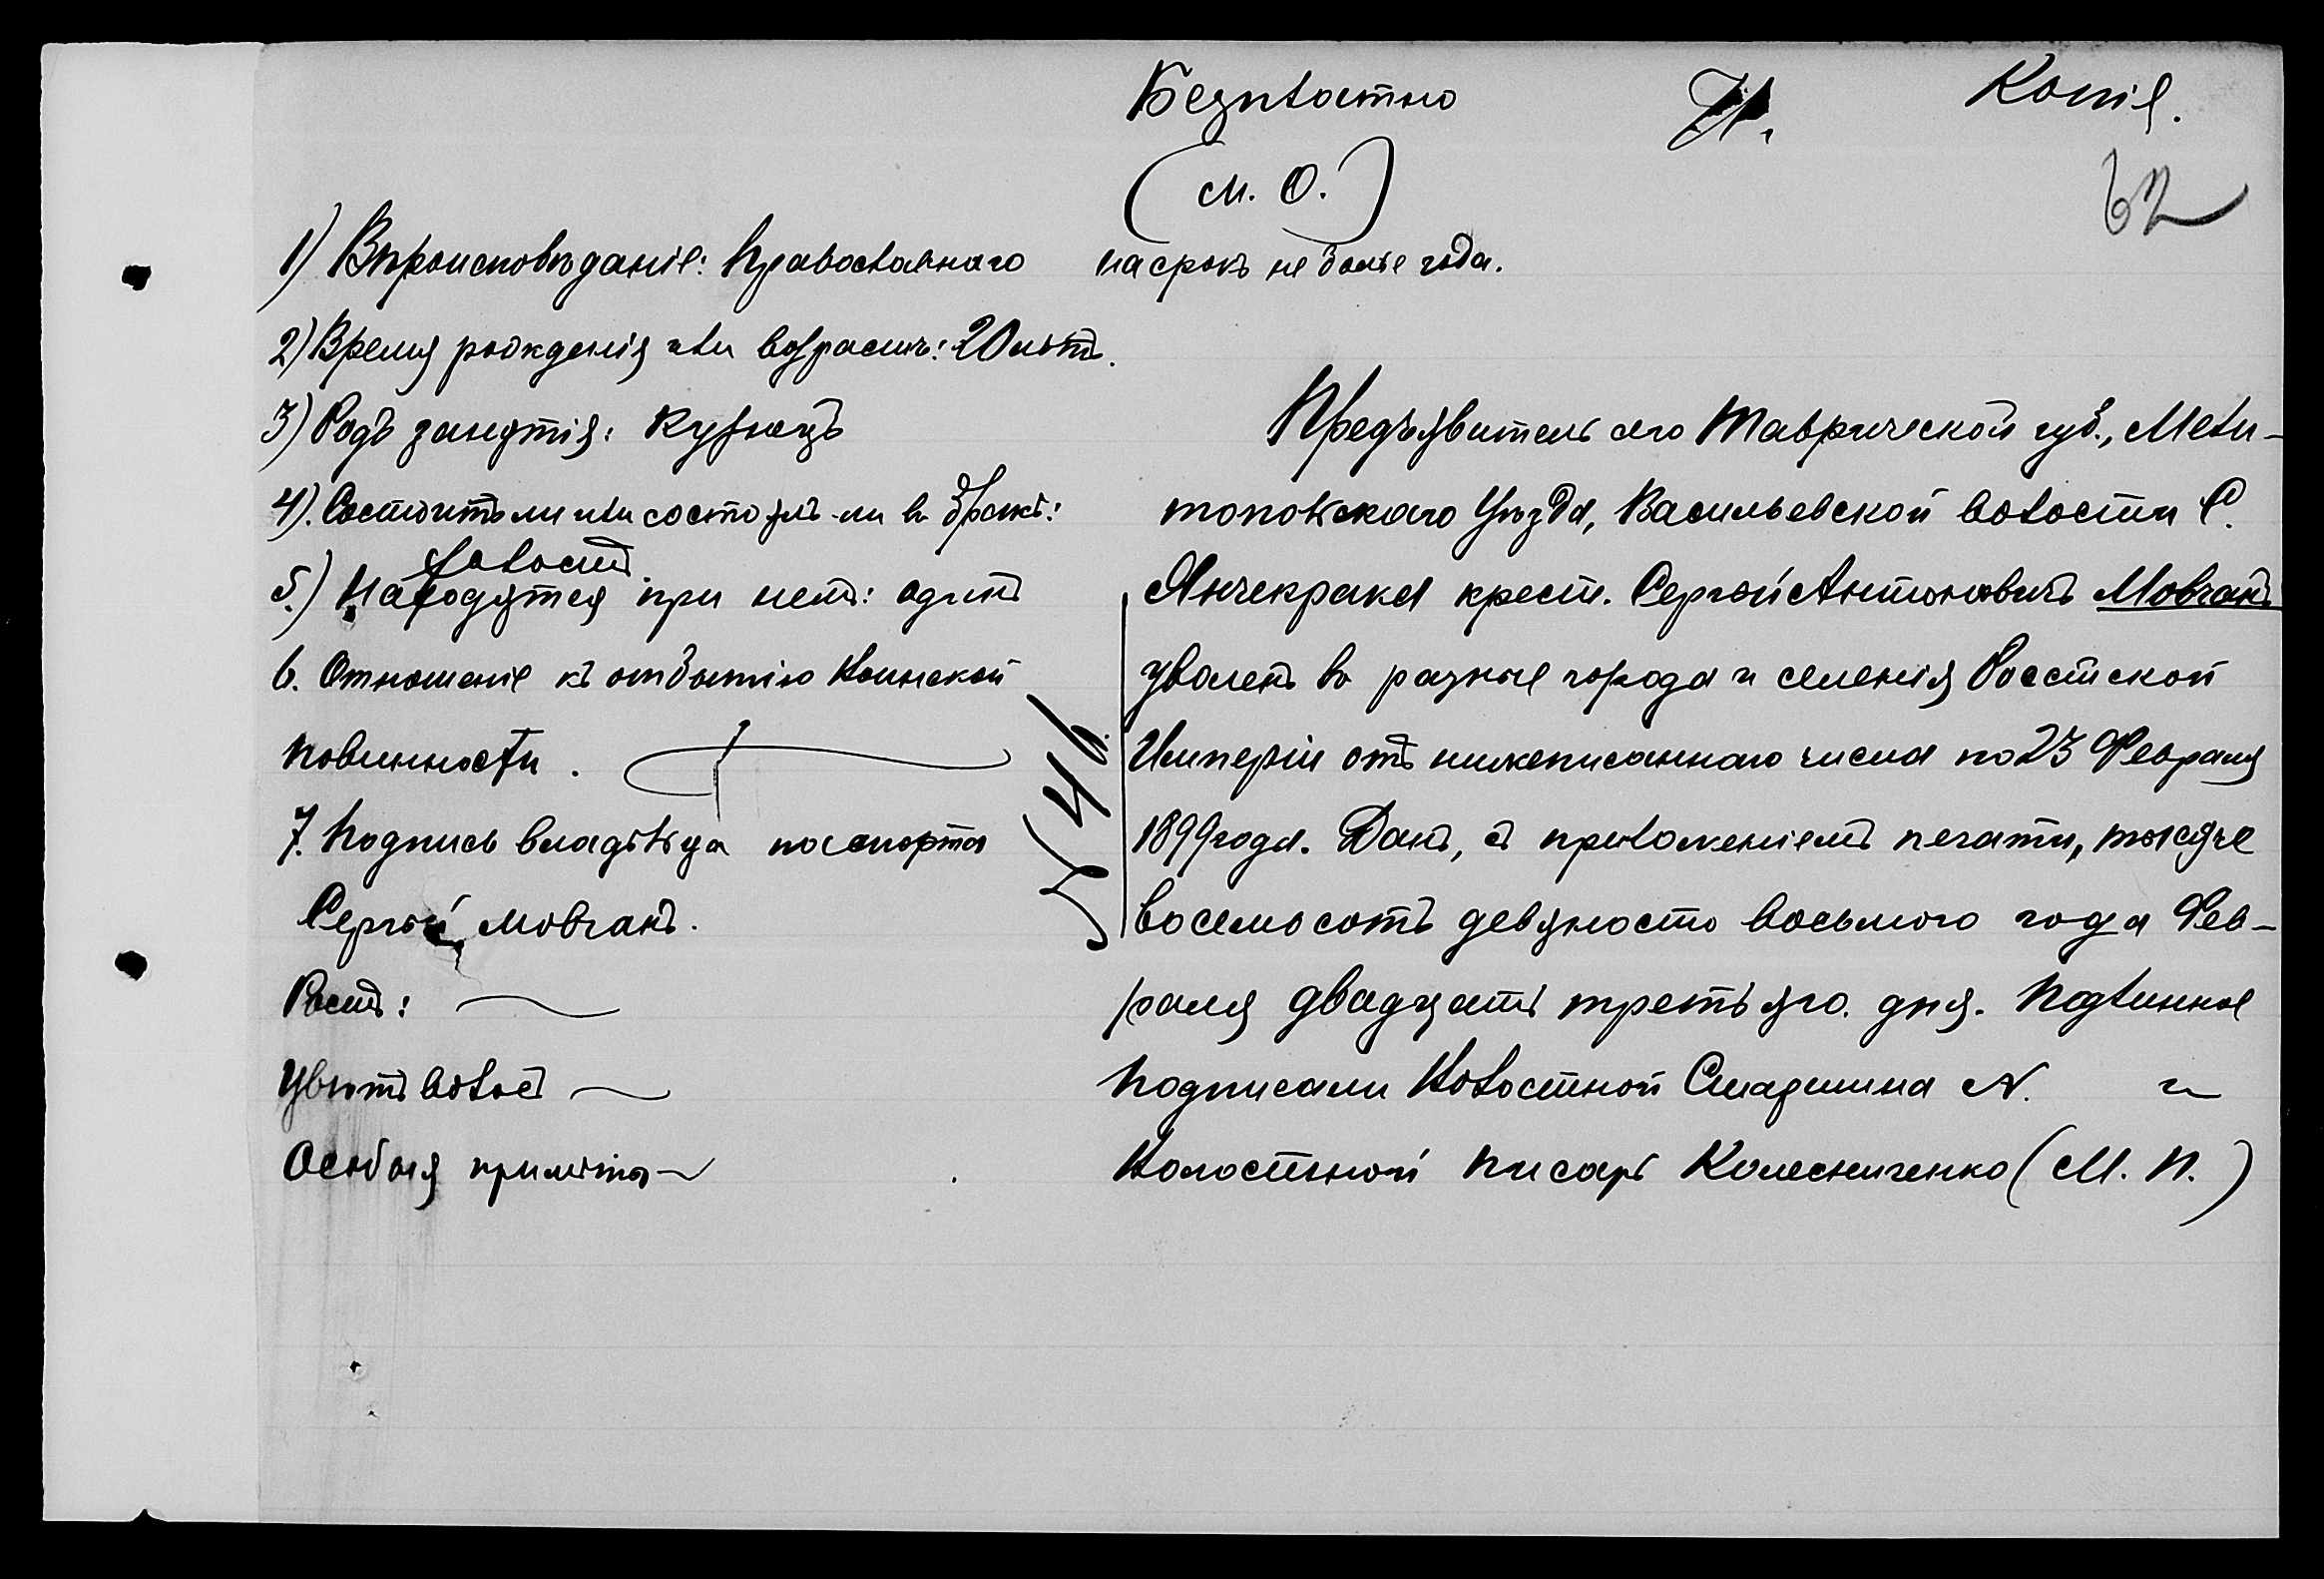 Безплатно
И.
Копія.
62
(М. О.)
на срокъ не болѣе года.
1) Вѣроисповѣданіе: Православнаго
2) Время рожденія или возрастъ: 20 лѣтъ.
3) Родъ занятія: Кузнецъ
4). Состоитъ ли или состоялъ-ли въ бракѣ:
холостъ.
5.) Находятся при немъ: одинъ
6. Отношеніе къ отбытію воинской
повинности.
7. Подпись владѣльца паспорта
Сергѣй Мовчанъ.
Ростъ:
Цвѣтъ волосъ
Особыя примѣты
546.
Предъявитель сего Таврической губ., Мели-
топольскаго Уѣзда, Васильевской волости С.
Янчекрака крест. Сергѣй Антоновичъ Мовчанъ
уволенъ въ разные города и селенія Россiйской
Имперіи отъ нижеписаннаго числа по 23 Февраля
1899 года. Данъ, съ приложеніемъ печати, тысяче
восемосотъ девяносто восьмого года Фев-
раля двадцать третьяго дня. Подлинное
подписали Волостной Старшина N. и
Волостной писарь Колесниченко (М. П.)